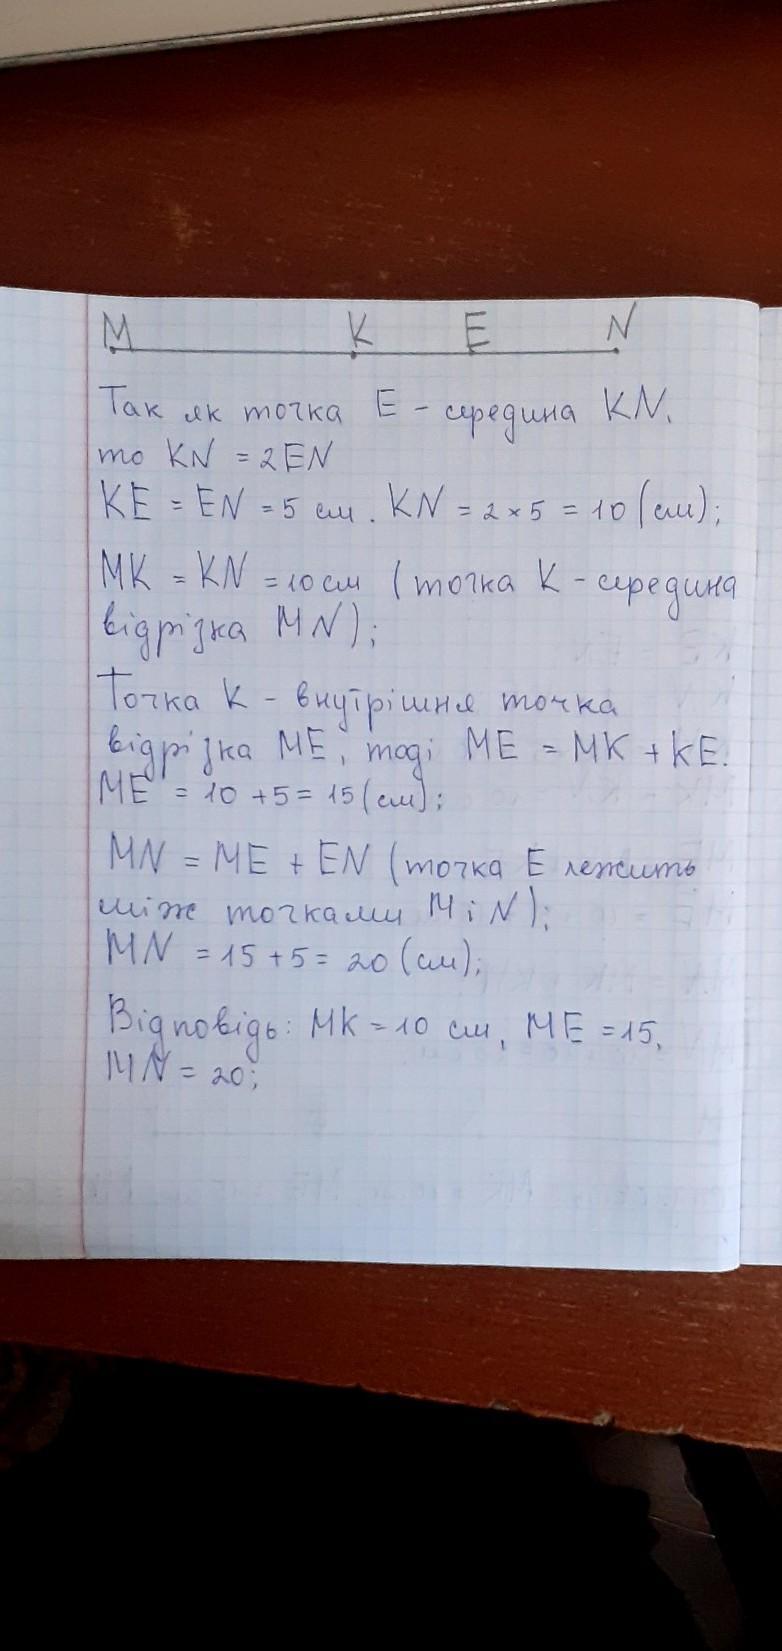 M K E N
Так як точка E - середина KN,
то KN = 2EN
KE = EN = 5 см. KN = 2 × 5 = 10 (см);
MK = KN = 10 см (точка K - середина
відрізка MN);
Точка K - внутрішня точка
відрізка ME, тоді ME = MK + KE.
ME = 10 + 5 = 15 (см);
MN = ME + EN (точка E лежить
між точками M і N);
MN = 15 + 5 = 20 (см);
Відповідь: MK = 10 см, ME = 15,
MN = 20;